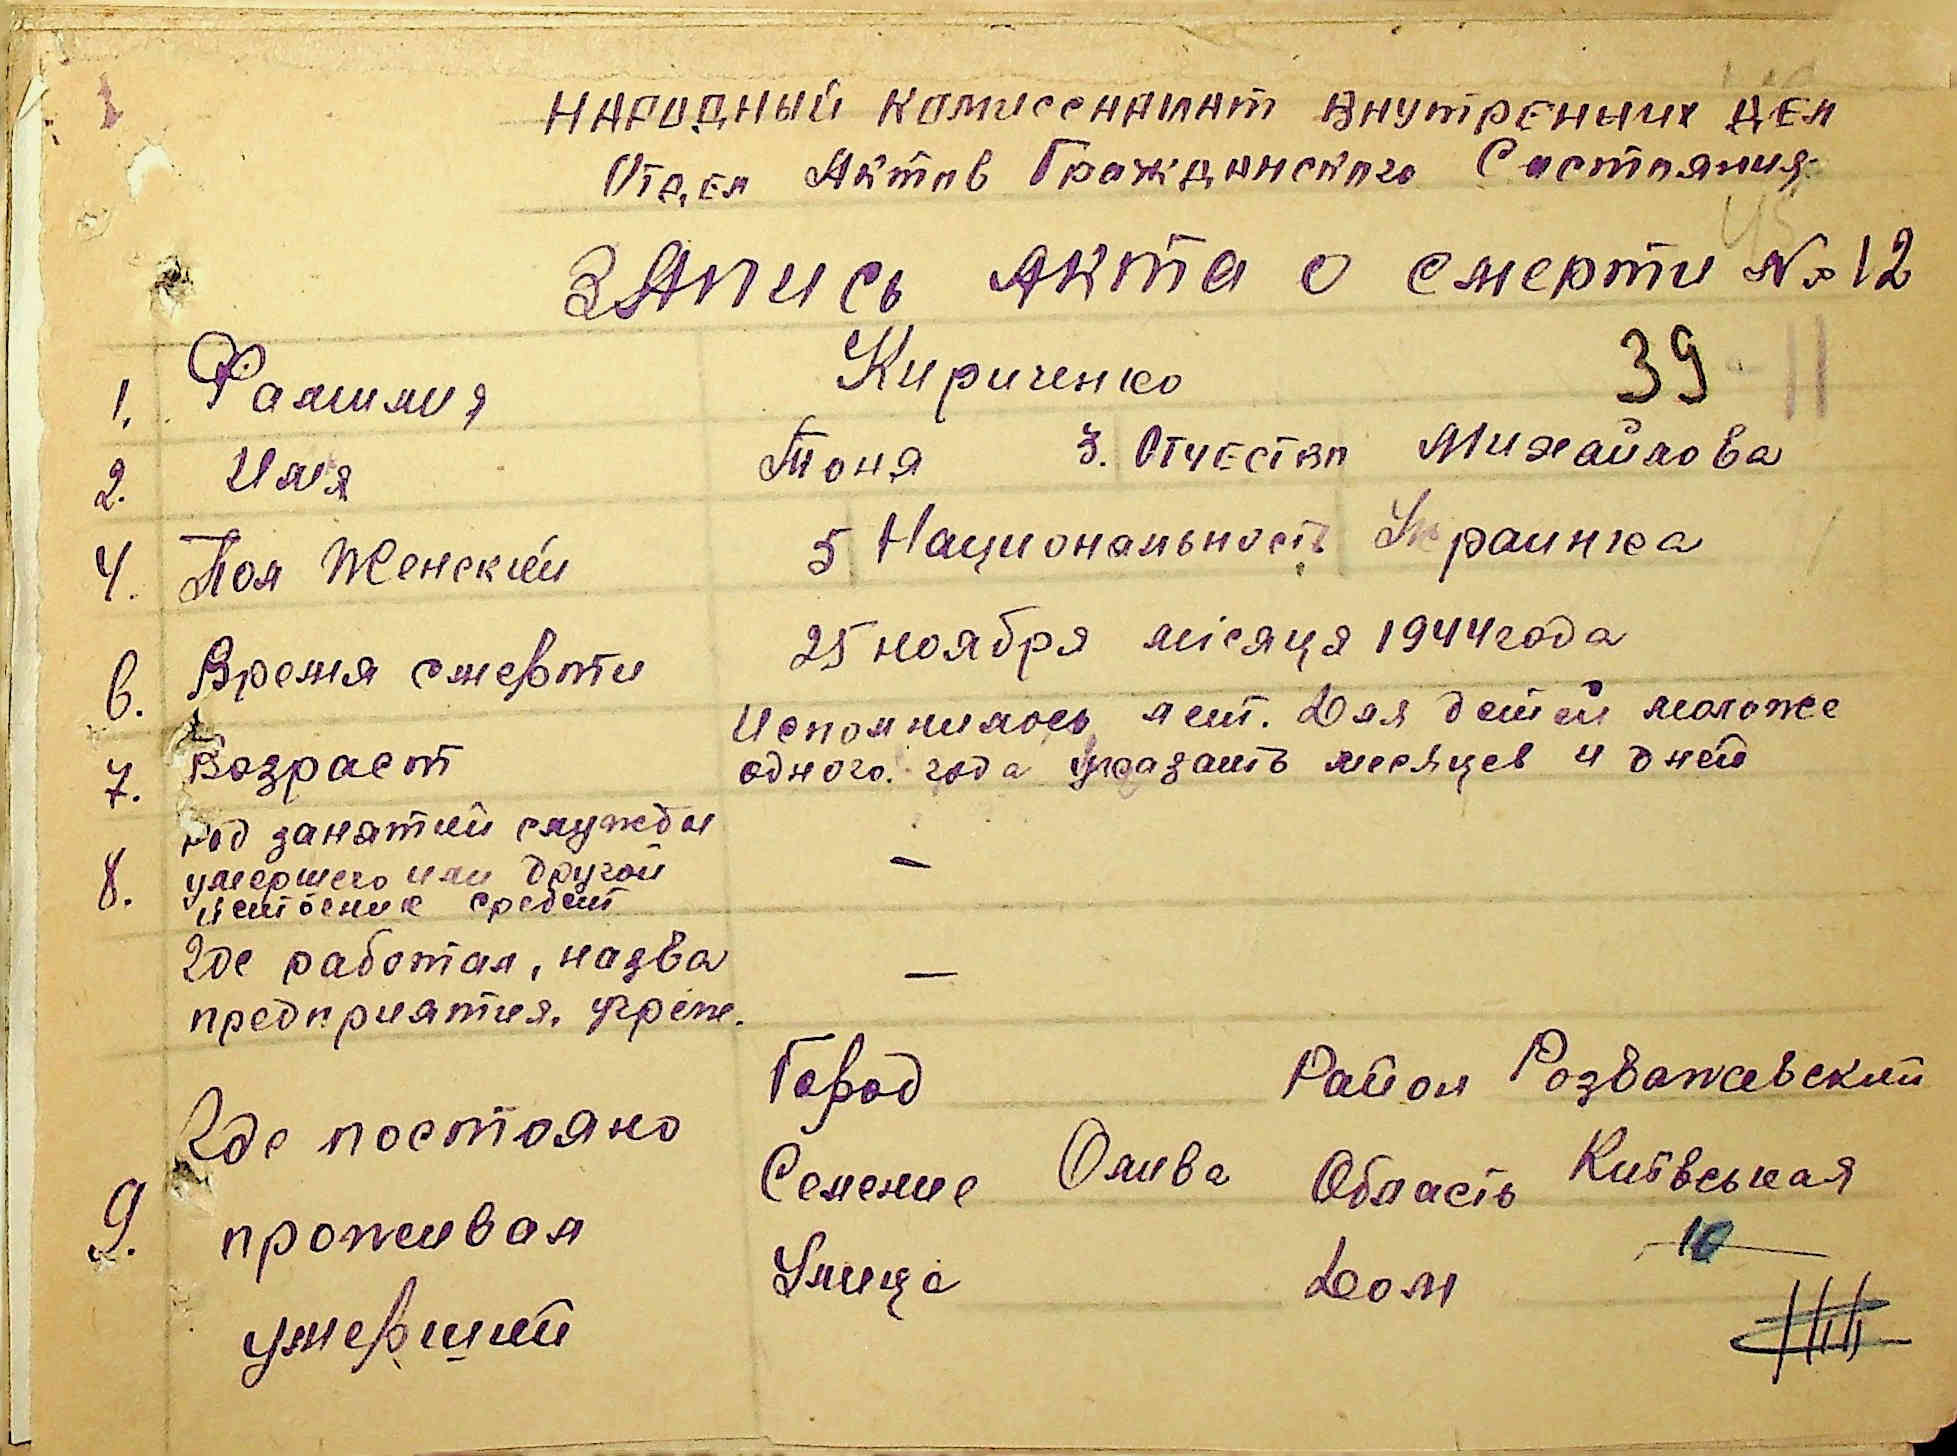 1
Народный комиссариат Внутренних дел
Отдел Актов Гражданского Состояния
45
Запись акта о смерти № 12
1. Фамилия Кириченко 39
2. Имя Тоня 3. Отчество Михайлова
4. Пол Женский 5 Национальность Украинка
6. Время смерти 25 ноября місяця 1944 года
7. Возраст Исполнилось лет. Для детей моложе
одного года указать месяцев 4 дней
8. род занятий службы
умершего или другой
средст
—
Где работал, назва
предприятия, учреж.
—
9. Где постояно
проживал
умерший
Город Район Розважевский
Селение Олива Область Київськая
Улица Дом 10